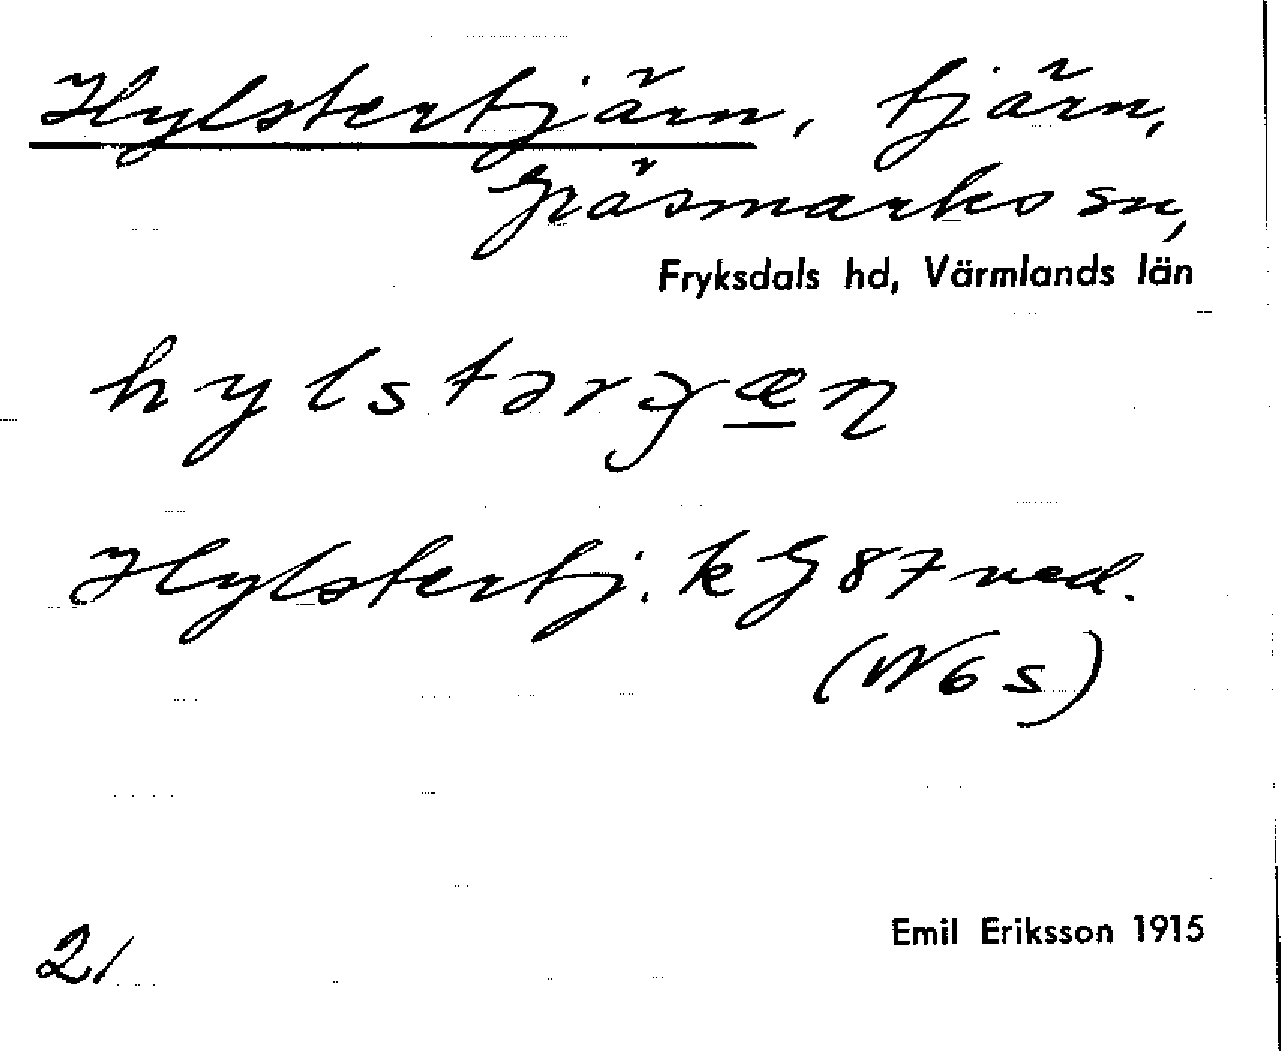 Hylstertjärn, tjärn,
Gräsmarks sn,
Fryksdals hd, Värmlands län
hylstərɟæɳ
Hylstertj. k G 87 ned.
(W6s)
21
Emil Eriksson 1915